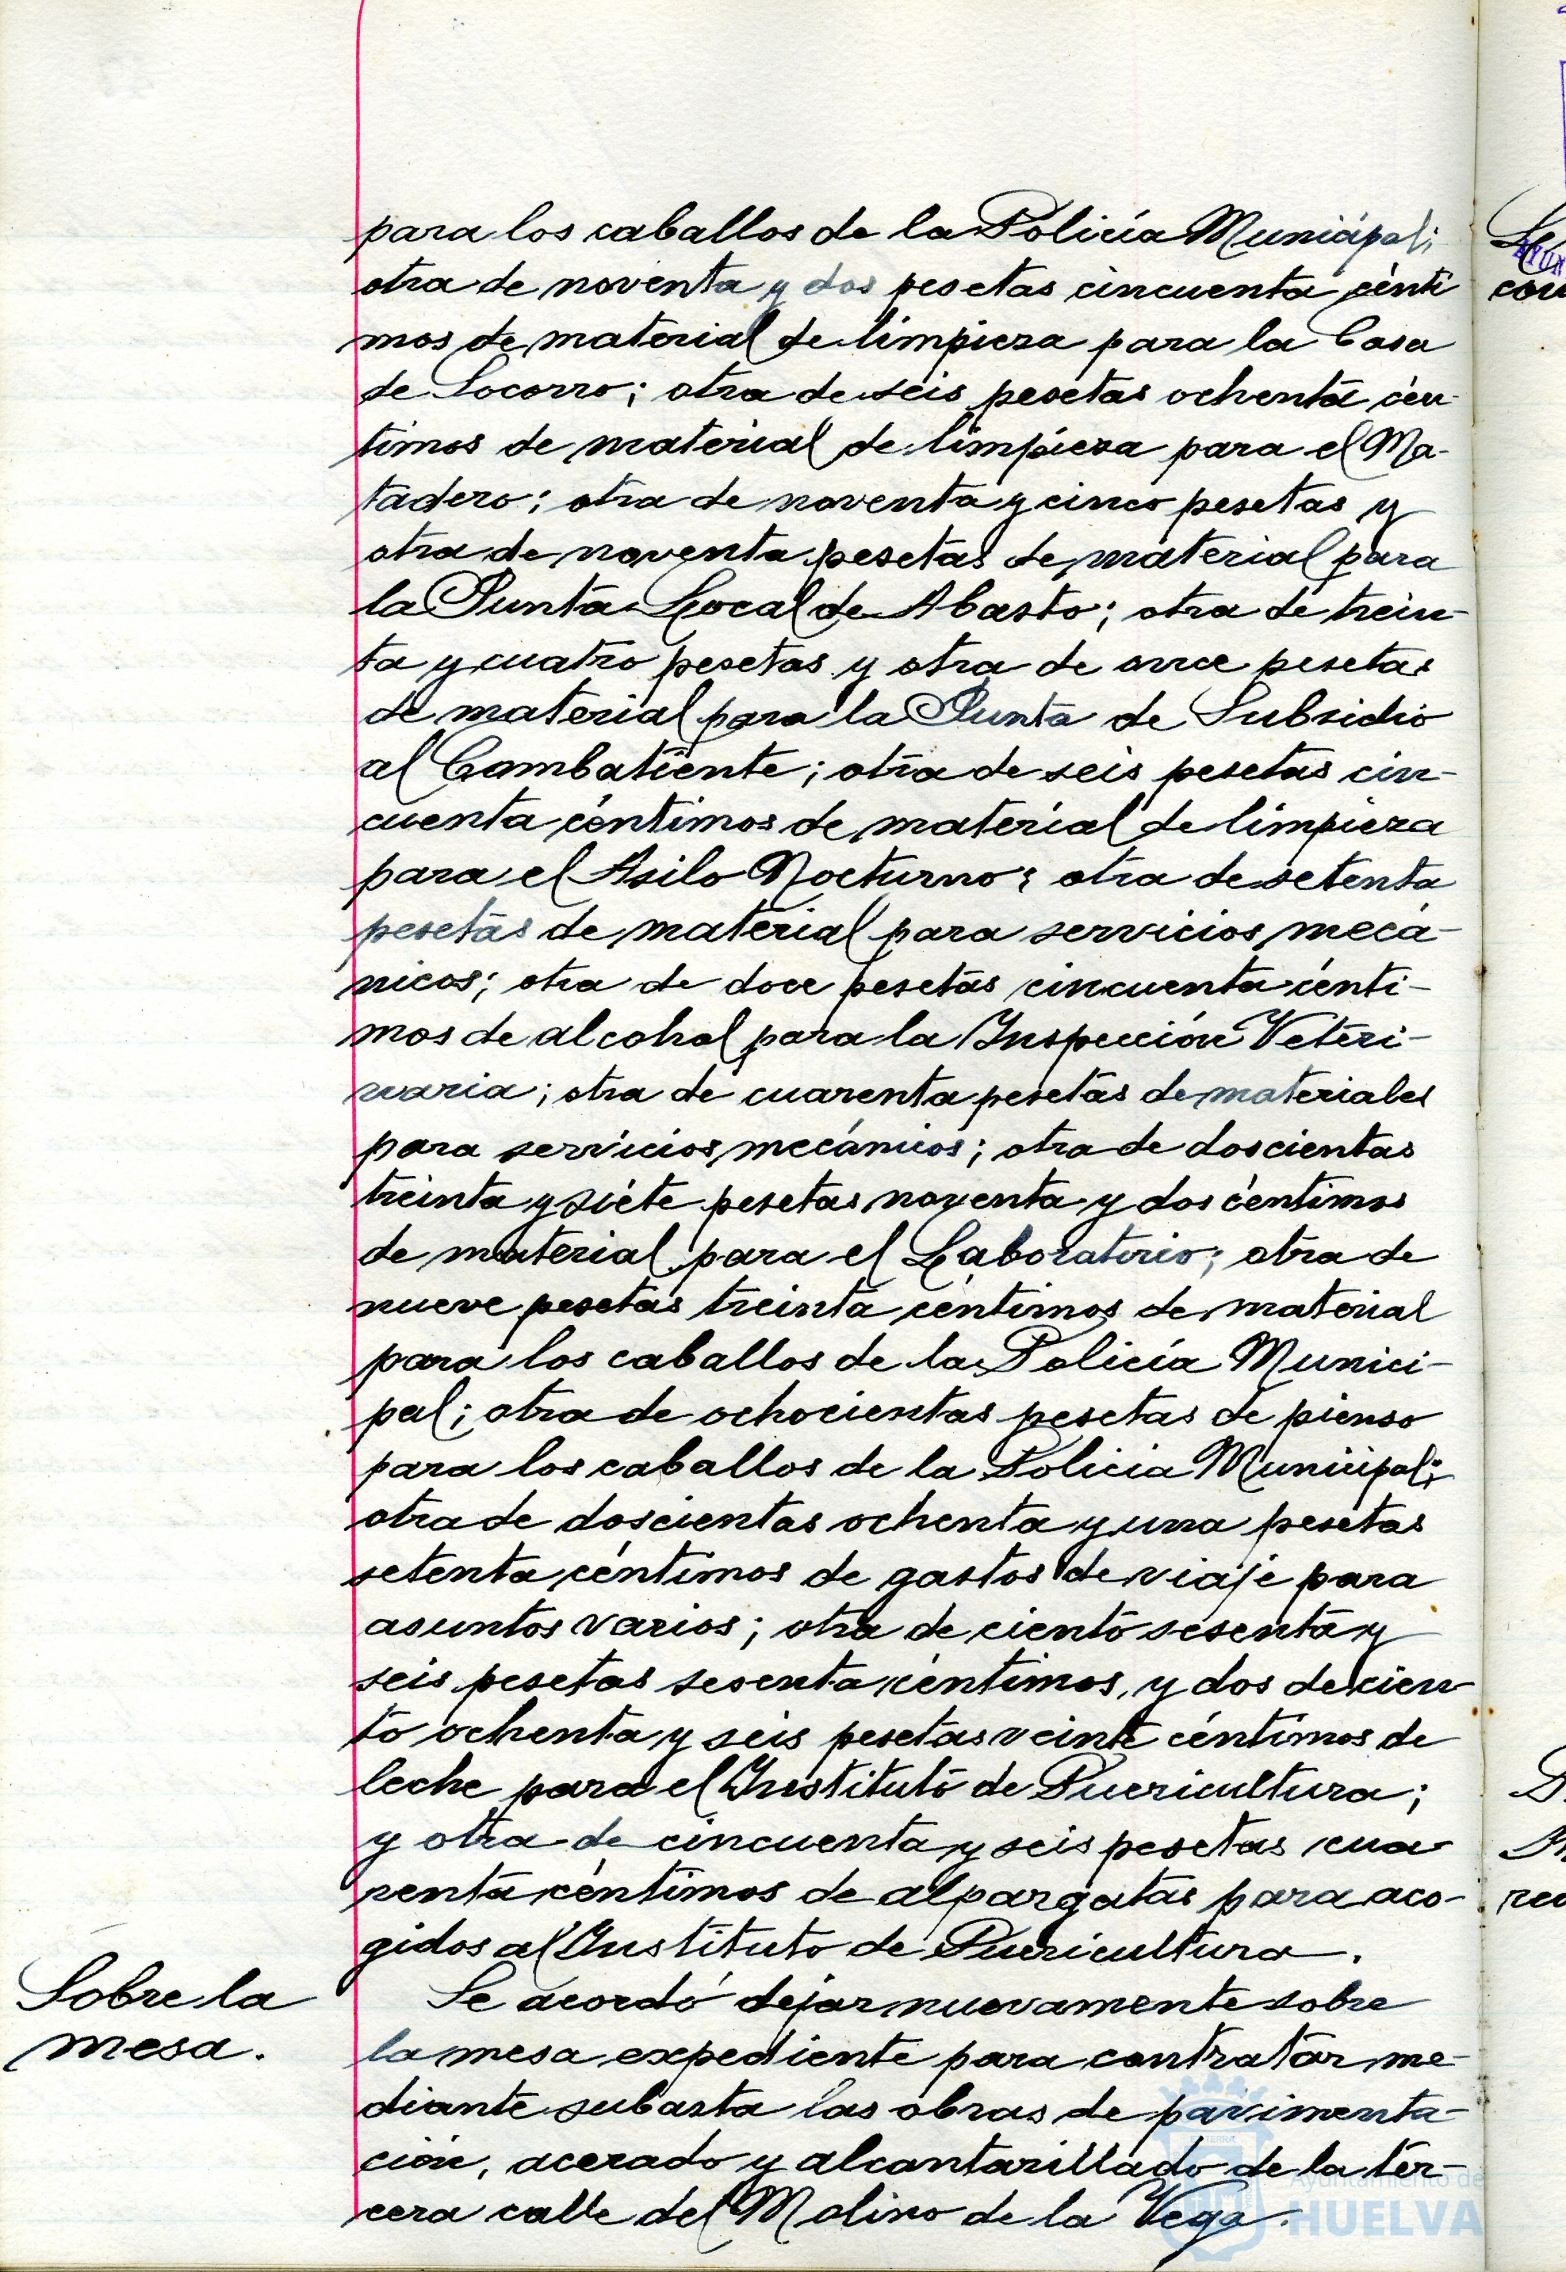 para los caballos de la Policía Municipal;
otra de noventa y dos pesetas cincuenta cénti
mos de material de limpieza para la Casa
de Socorro; otra de seis pesetas ochenta cén-
timos de material de limpieza para el Ma-
tadero; otra de noventa y cinco pesetas y
otra de noventa pesetas de material para
la Junta Local de Abasto; otra de trein-
ta y cuatro pesetas y otra de once pesetas
de material para la Junta de Subsidio
al Combatiente; otra de seis pesetas cin-
cuenta céntimos de material de limpieza
para el Asilo Nocturno; otra de setenta
pesetas de material para servicios mecá-
nicos; otra de doce pesetas cincuenta cénti-
mos de alcohol para la Inspección Veteri-
naria; otra de cuarenta pesetas de materiales
para servicios mecánicos; otra de doscientas
treinta y siete pesetas noventa y dos céntimos
de material para el Laboratorio; otra de
nueve pesetas treinta céntimos de material
para los caballos de la Policía Munici-
pal; otra de ochocientas pesetas de pienso
para los caballos de la Policía Municipal;
otra de doscientas ochenta y una pesetas
setenta céntimos de gastos de viaje para
asuntos varios; otra de ciento sesenta y
seis pesetas sesenta céntimos, y dos de cien-
to ochenta y seis pesetas veinte céntimos de
leche para el Instituto de Puericultura;
y otra de cincuenta y seis pesetas cua-
renta céntimos de alpargatas para aco-
gidos al Instituto de Puericultura.
Sobre la
mesa.
Se acordó dejar nuevamente sobre
la mesa expediente para contratar me-
diante subasta las obras de pavimenta-
ción, acerado y alcantarillado de la ter-
cera calle del Molino de la Vega.
Ayuntamiento de
HUELVA